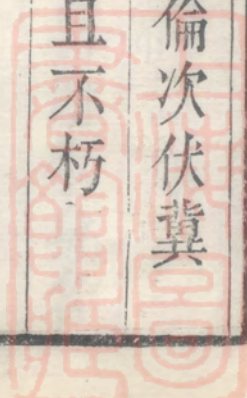 倫次伏冀
且不朽